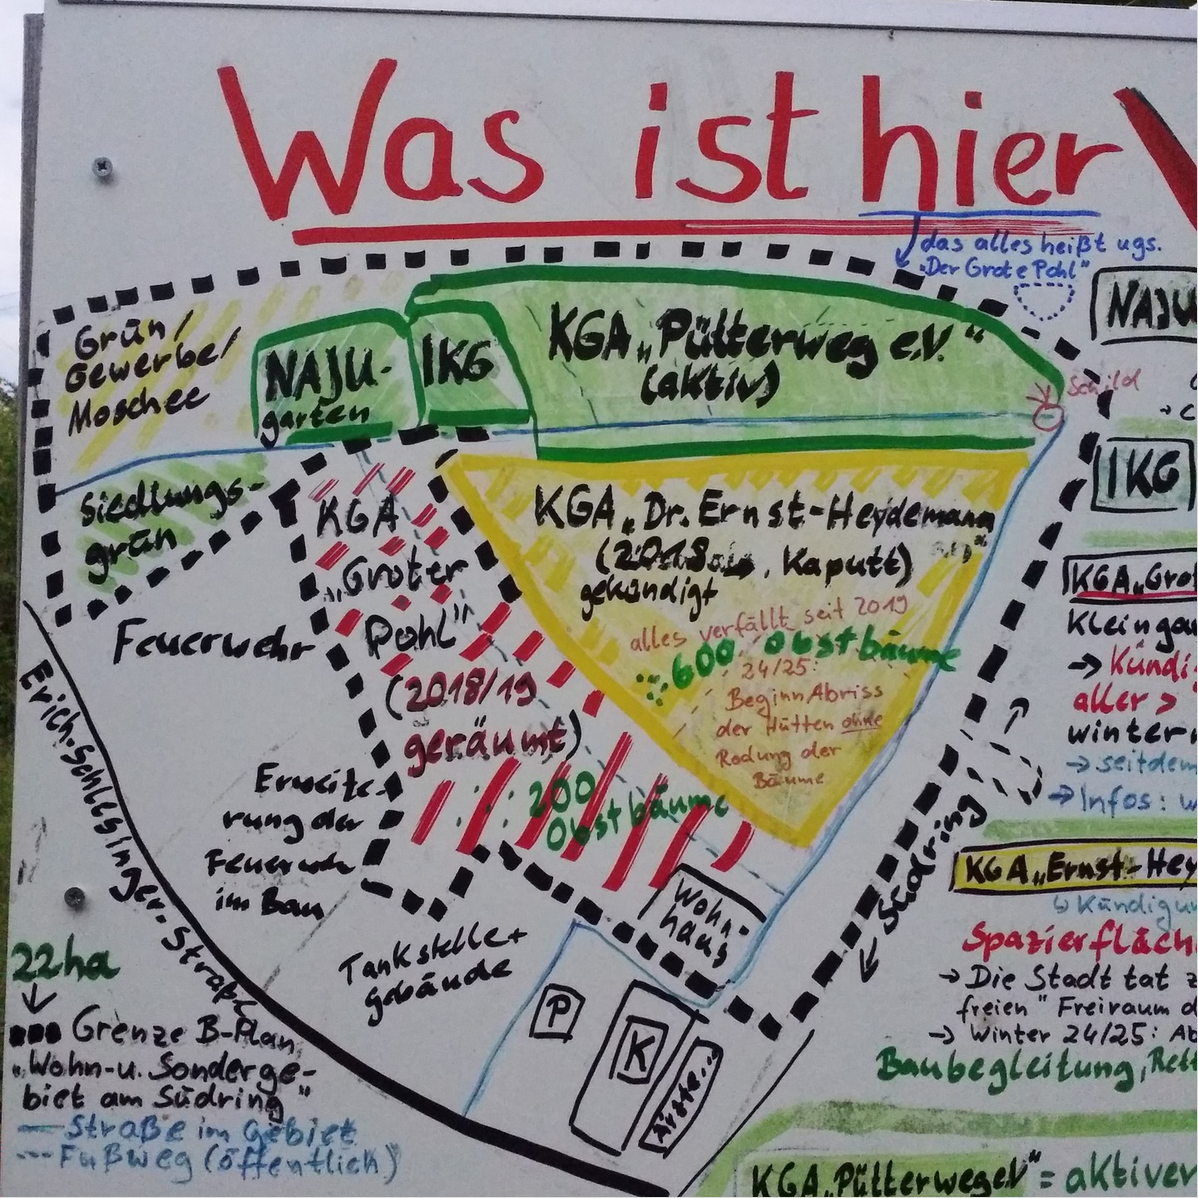 Was ist hier
das alles heißt ugs.
"Der Grote Pohl"
Grün/
Gewerbe/
Moschee
NAJU-
garten
IKG
KGA „Pütterweg e.V."
(aktiv)
Schild
NAJU
IKG
Siedlungs-
grün
KGA
„Groter
Pohl"
(2018/19
geräumt)
200
Obstbäume
KGA „Dr. Ernst-Heydemann
(2018, Kaputt)
gekündigt
alles verfällt seit 2019
600 Obstbäume
24/25:
Beginn Abriss
der Hütten ohne
Rodung der
Bäume
Feuerwehr
Erweite-
rung der
Feuerweh
im Bau
Tankstelle+
gebäude
Wohn-
haus
P
K
Ärzte..
Erich-Schlesinger-Straße
← Südring →
22ha
Grenze B-Plan
„Wohn-u. Sonderge-
biet am Südring"
Straße im Gebiet
Fußweg (öffentlich)
KGA „Gro
Kleinga
→ Kündi
aller >
winter
→ seitdem
→ Infos:
KGA „Ernst-Hey
↳ Kündigu
Spazierfläch
→ Die Stadt tat z
freien" Freiraum d
→ Winter 24/25: Ab
Baubegleitung, Rett
KGA „Pütterweg eV" = aktiver